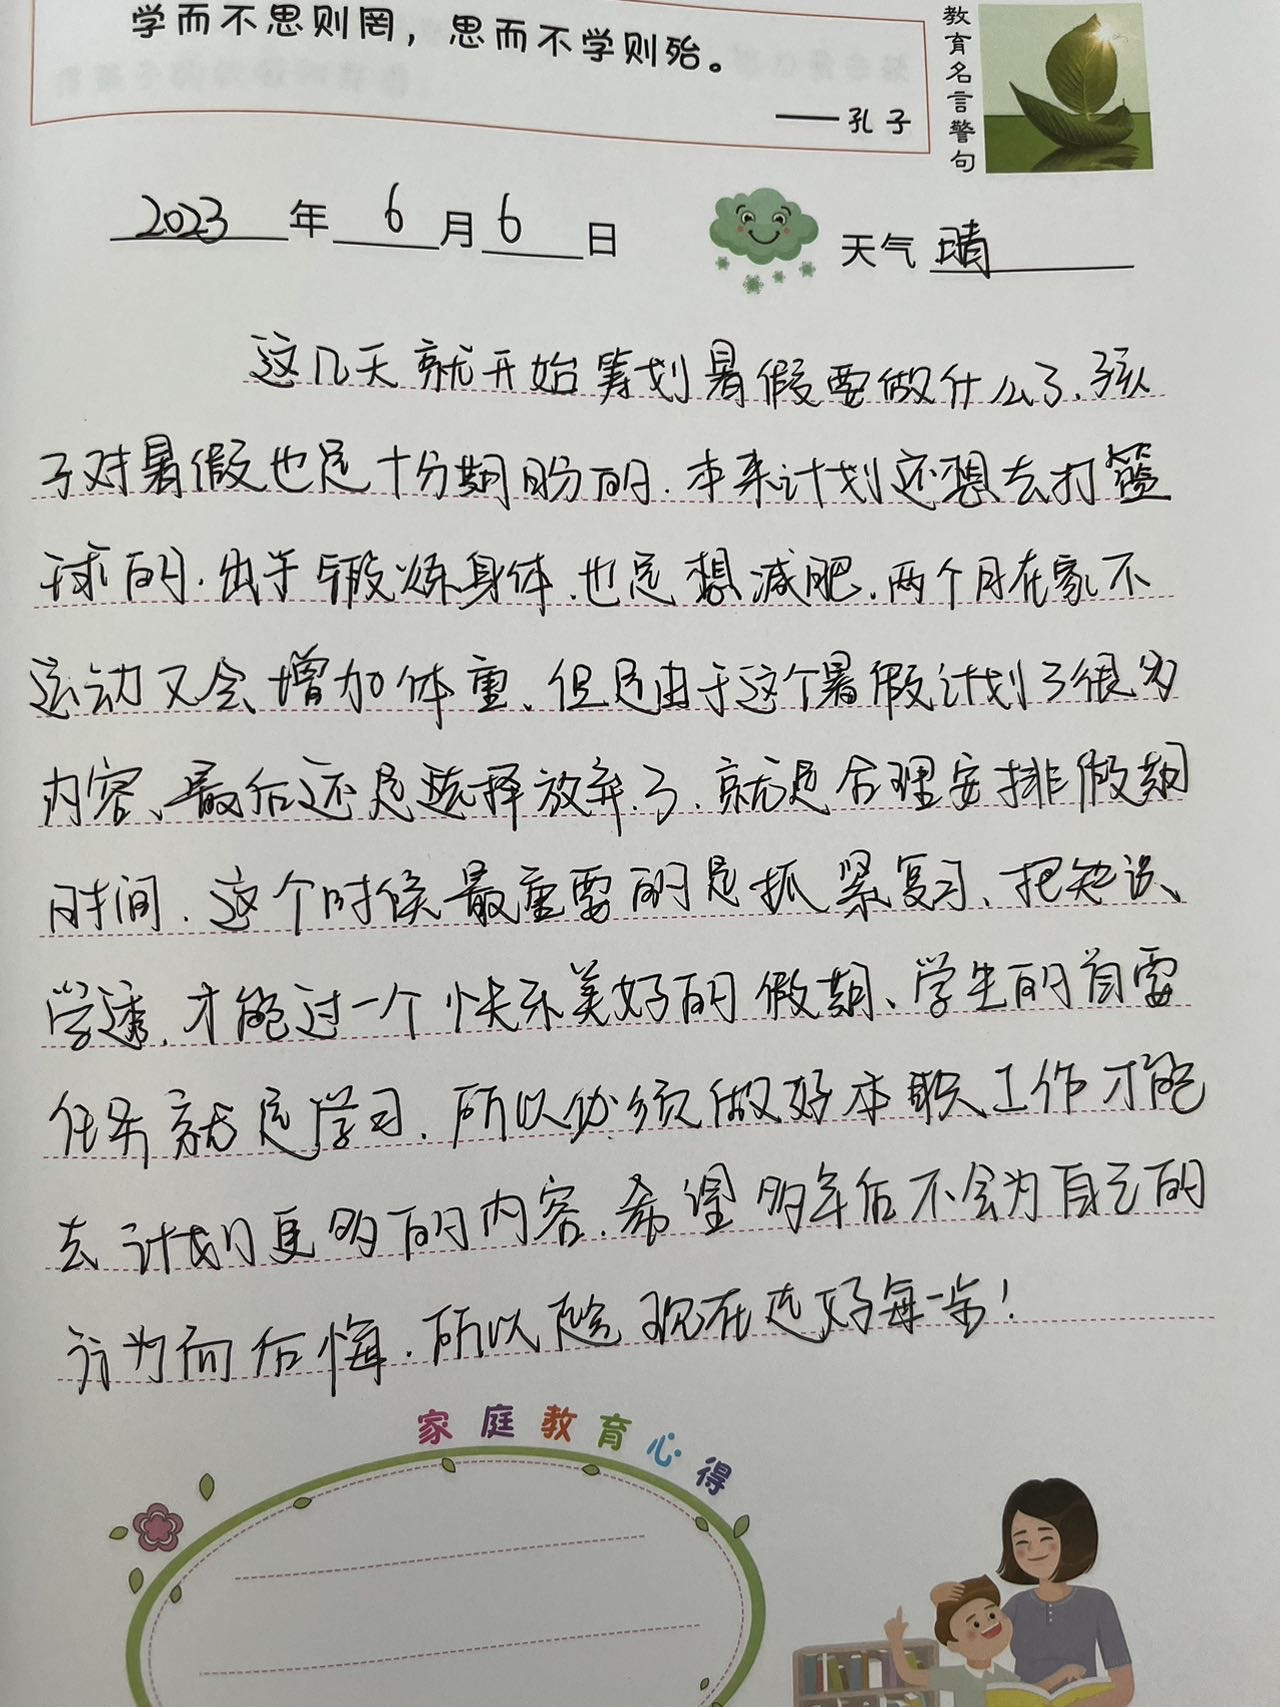 学而不思则罔，思而不学则殆。
——孔子
教育名言警句
2023年6月6日 天气 晴
这几天就开始筹划暑假要做什么了.孩
子对暑假也是十分期盼的.本来计划还想去打篮
球的.出于锻炼身体.也是想减肥.两个月在家不
运动又会增加体重、但是由于这个暑假计划了很多
内容、最后还是选择放弃了.就是合理安排假期
时间.这个时候最重要的是抓紧复习、把知识、
学透.才能过一个快乐美好的假期、学生的首要
任务就是学习.所以必须做好本职工作才能
去计划更多的内容.希望多年后不会为自己的
行为而后悔.所以趁现在走好每一步！
家庭教育心得